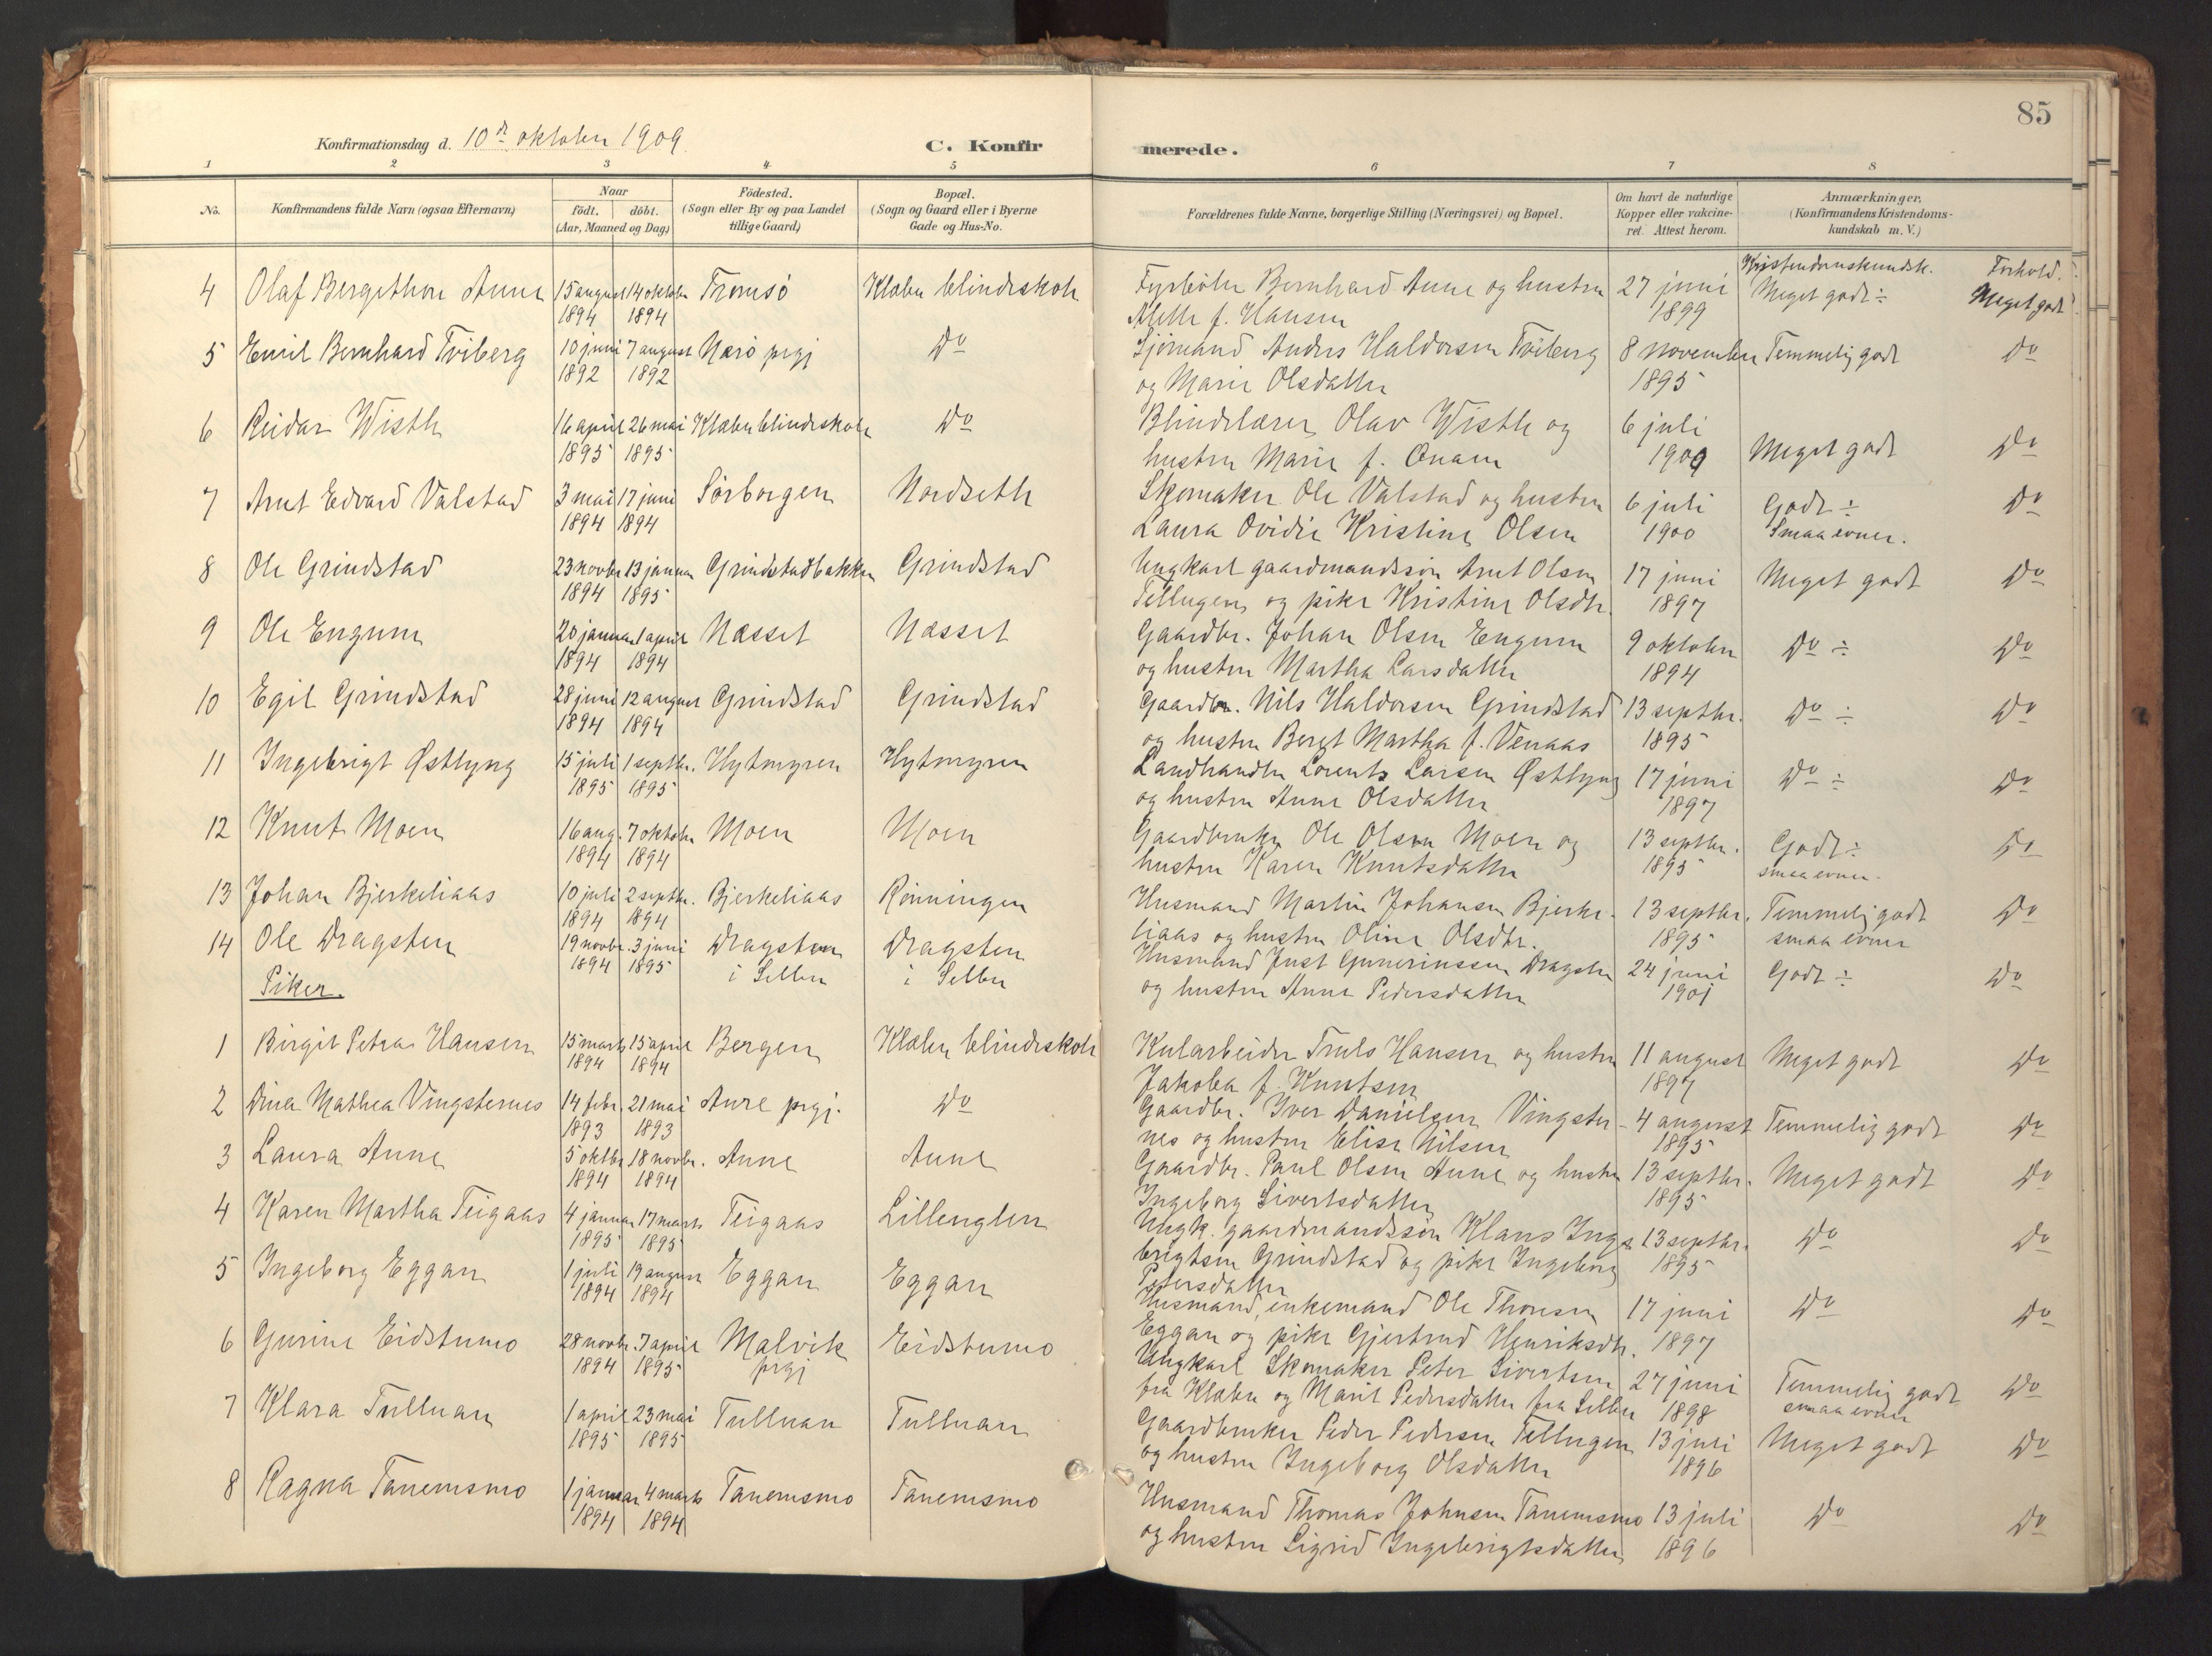 85
Konfirmationsdag d. 10de oktober 1909
C. Konfir merede.
1 2 3 4 5 6 7 8
No. Konfirmandens fulde Navn (ogsaa Efternavn) Naar födt. döbt. (Aar, Maaned og Dag) Födested. (Sogn eller By og paa Landet tillige Gaard) Bopæl. (Sogn og Gaard eller i Byerne Gade og Hus-No. Forældrenes fulde Navne, borgerlige Stilling (Næringsvei) og Bopæl. Om havt de naturlige Kopper eller vakcineret. Attest herom. Anmærkninger. (Konfirmandens Kristendomskundskab m. V.)
Kristendomskundsk. Forhold.
4 Olaf Bergithon Aune 15 august 14 oktober Tromsö Klæbu blindeskole Fyrböter Bernhard Aune og hustru 27 juni Meget godt ÷ Meget godt
1894 1894 Aletle f. Hansen 1899
5 Emil Bernhard Tviberg 10 juni 7 august Nærö prgj Do Sjömand Anders Haldorsen Tviberg 8 november Temmelig godt Do
1892 1892 og Marie Olsdatter 1895
6 Reidar Wisth 16 april 26 mai Klæbu blindeskole Do Blindelærer Olav Wisth og 6 juli Meget godt Do
1895 1895 hustru Marie f. 1909
7 Arnt Edvard Valstad 3 mai 17 juni Sørborgen Nordseth Skomaker Ole Valstad og hustru 6 juli Godt ÷ Do
1894 1894 Laura Ovidie Kristine Olsen 1900 Smaa evner.
8 Ole Grindstad 23 novbr 13 januar Grindstadbakken Grindstad Ungkarl gaardmandssön Arnt Olsen 17 juni Meget godt Do
1894 1895 Tellugen og pike Kristine Olsdtr. 1897
9 Ole Engum 20 januar 1 april Næsset Næsset Gaardbr. Johan Olsen Engum 9 oktober Do ÷ Do
1894 1894 og hustru Martha Larsdatter 1894
10 Egil Grindstad 28 juni 12 august Grindstad Grindstad Gaardbr. Nils Haldorsen Grindstad 13 septbr. Do ÷ Do
1894 1894 og hustru Beret Martha f. Venaas 1895
11 Ingebrigt Østlyng 15 juli 1 septbr. Hytmyren Hytmyren Landhandler Lorents Larsen Østlyng 17 juni Do ÷ Do
1895 1895 og hustru Anne Olsdatter 1897
12 Knut Moen 16 aug. 7 oktober Moen Moen Gaardbruker Ole Olsen Moen og 13 septbr. Godt ÷ Do
1894 1894 hustru Karen Knutsdatter 1895 smaa evner.
13 Johan Bjerkeliaas 10 juli 2 septbr. Bjerkeliaas Rönningen Husmand Martin Johansen Bjerke- 13 septbr. Temmelig godt Do
1894 1894 liaas og hustru Oline Olsdtr. 1895 smaa evner
14 Ole Dragsten 19 novbr. 3 juni Dragsten Dragsten Husmand Just Gunerinssen Dragsten 24 juni Godt ÷ Do
1894 1895 i Selbu i Selbu og hustru Anne Pedersdatter 1901
Piker.
1 Birgit Petra Hansen 15 marts 15 april Bergen Klæbu blindeskole Kularbeider Truls Hansen og hustru 11 august Meget godt Do
1894 1894 Jakoba f. Knutsen 1897
2 Dina Mathea Vingsternes 14 febr. 21 mai Aure prgj. Do Gaardbr. Iver Danielsen Vingster- 4 august Temmelig godt Do
1893 1893 nes og hustru Elise Nilsen 1895
3 Laura Aune 5 oktbr 18 novbr. Aune Aune Gaardbr. Paul Olsen Aune og hustru 13 septbr. Meget godt Do
1894 1894 Ingeborg Sivertsdatter 1895
4 Karen Martha Teigaas 4 januar 17 marts Teigaas Lilleuglen Ungk. gaardmandssön Klaus Inge- 13 septbr. Do Do
1895 1895 brigtsen Grindstad og pike Ingeborg 1895
Petersdatter
5 Ingeborg Eggan 1 juli 19 august Eggan Eggan Husmand, enkemand Ole Thoresen 17 juni Do Do
1894 1894 Eggan og pike Gjertrud Henriksdtr. 1897
6 Gurine Eidstumo 28 novbr. 7 april Malvik Eidstumo Ungkarl Skomaker Peter Sivertsen 27 juni Temmelig godt Do
1894 1895 prgj fra Klæbu og Marit Pedersdatter fra Selbu 1898 smaa evner
7 Klara Tulluan 1 april 23 mai Tulluan Tulluan Gaardbruker Peder Pedersen Tellugen 13 juli Meget godt Do
1895 1895 og hustru Ingeborg Olsdatter 1896
8 Ragna Tanemsmo 1 januar 4 marts Tanemsmo Tanemsmo Husmand Thomas Johnsen Tanemsmo 13 juli Do Do
1894 1894 og hustru Sigrid Ingebrigtsdatter 1896